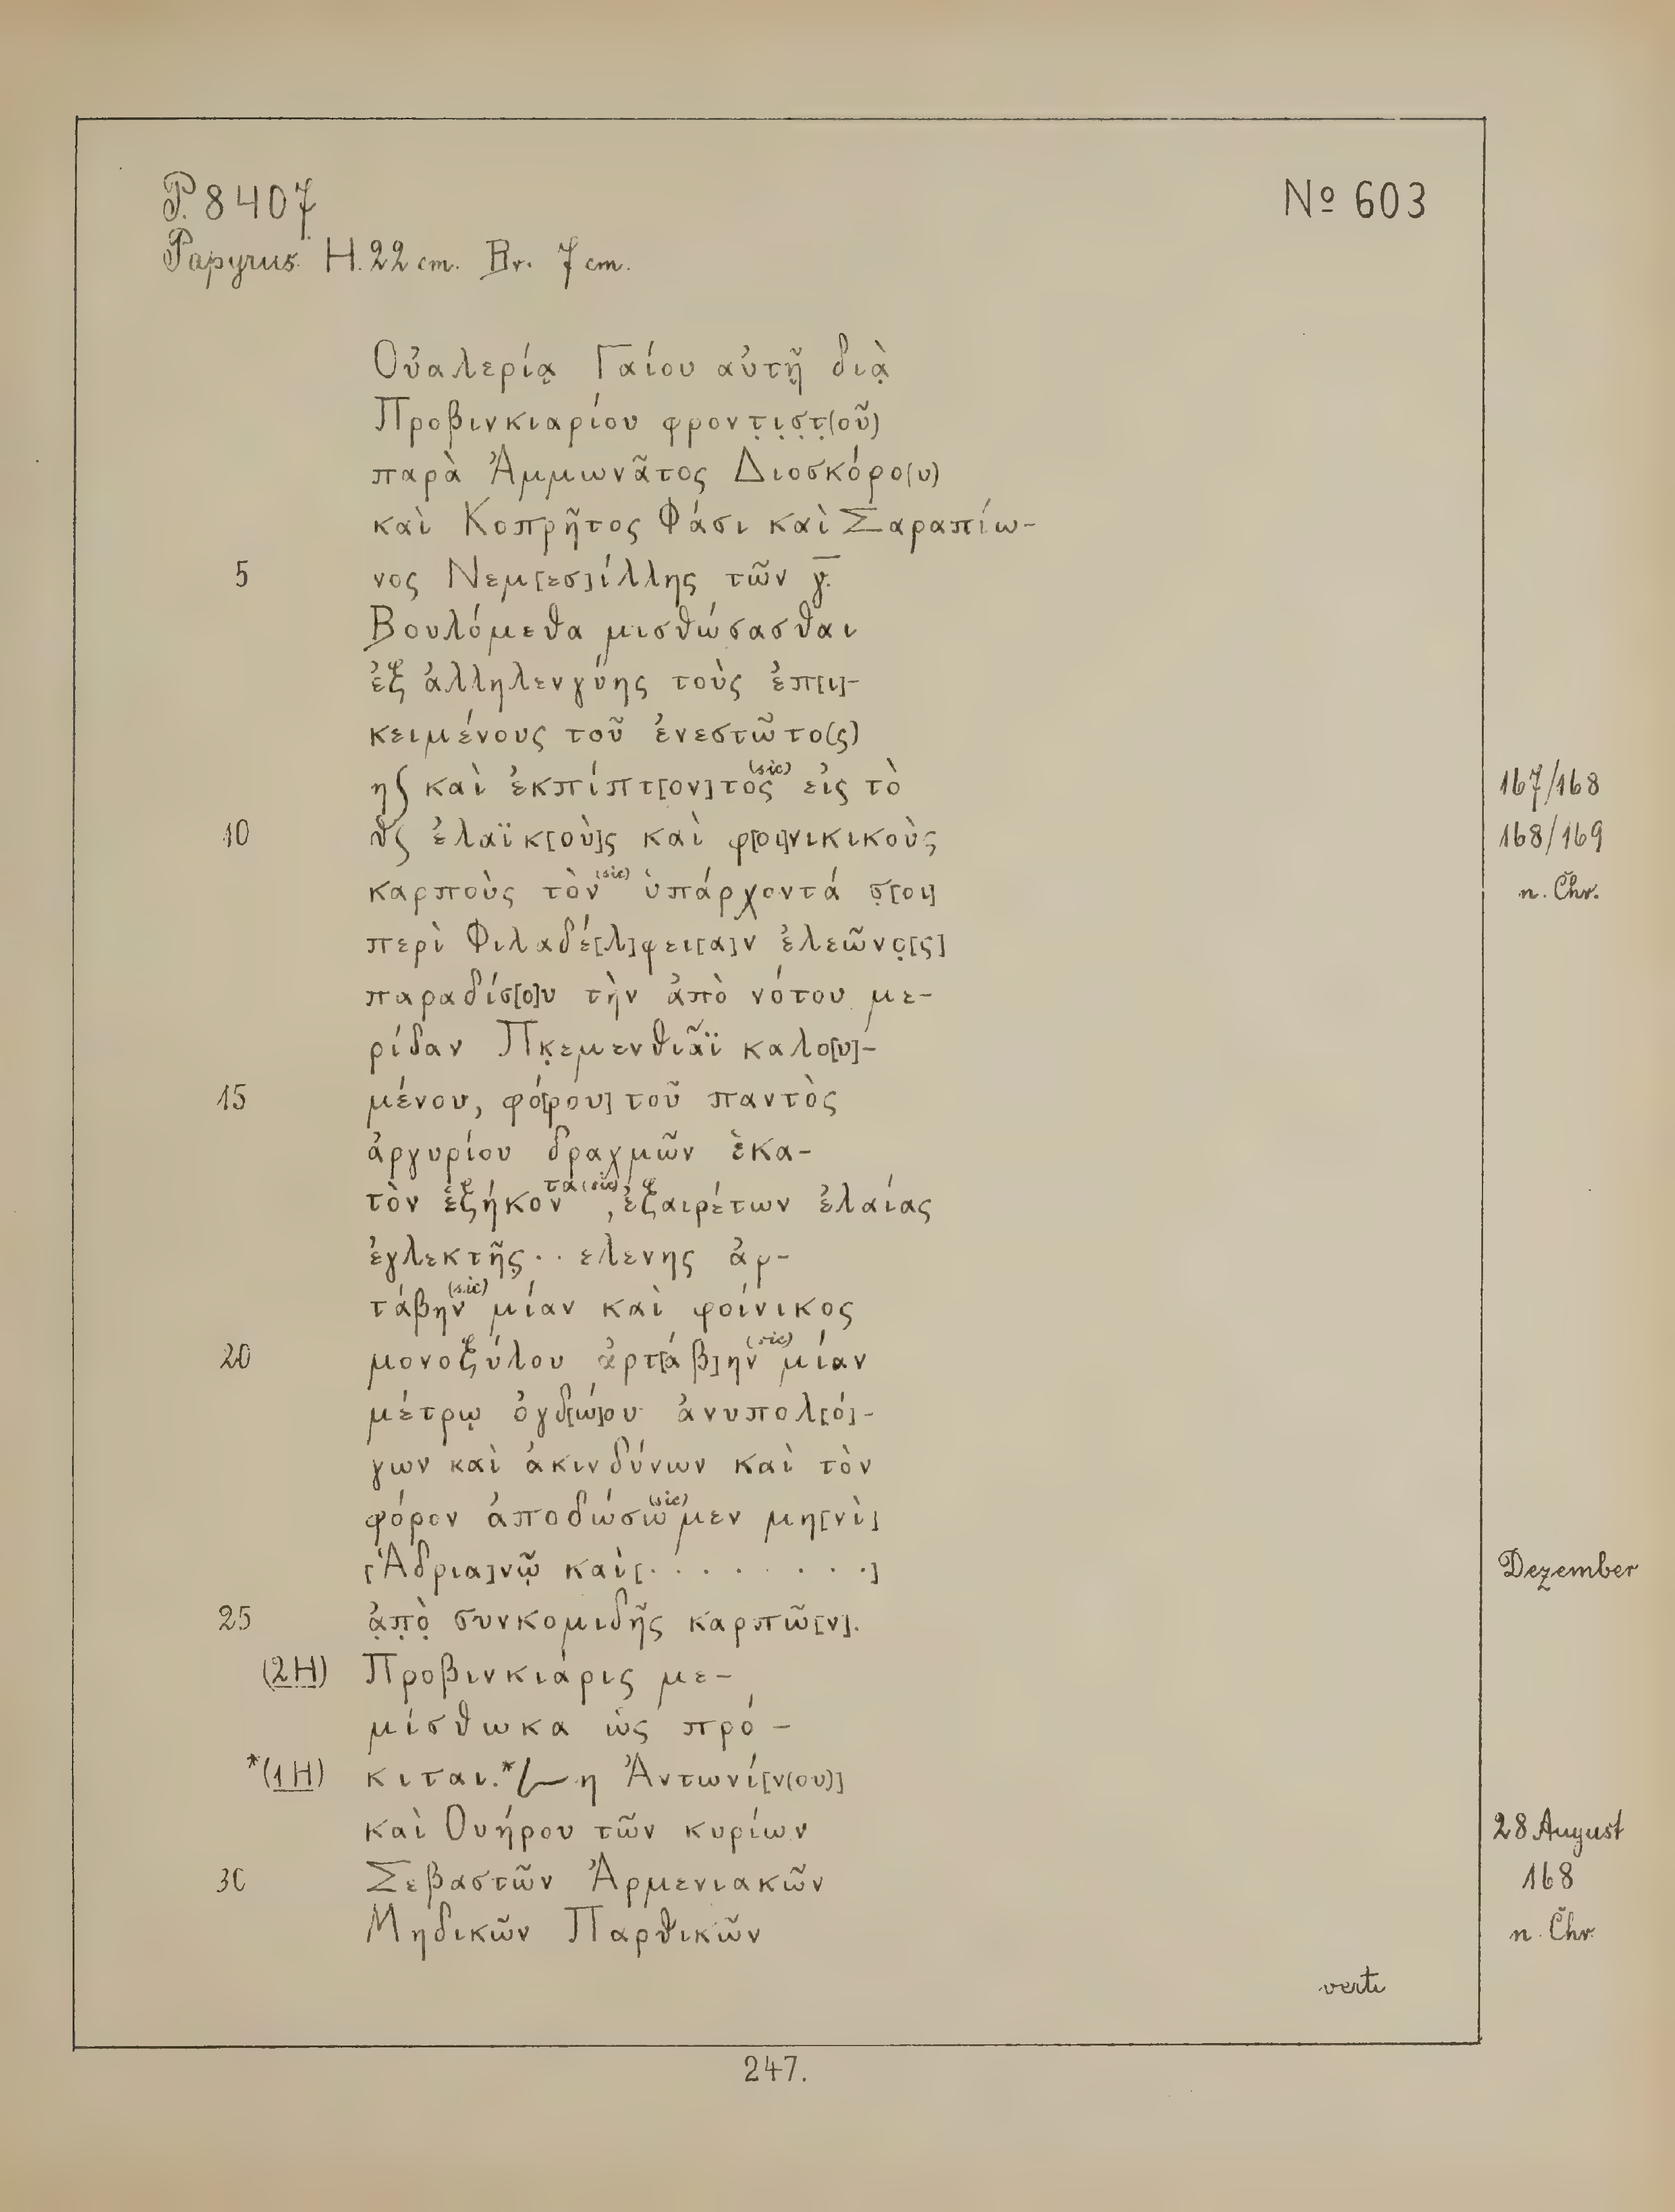 P. 8407
Nº 603
Papyrus. H. 22 cm. Br. 7 cm.
Οὐαλερίᾳ Γαίου αὐτῇ διὰ̣
Προβινκιαρίου φροντ̣ι̣σ̣τ̣(οῦ)
παρὰ Ἀμμωνᾶτος Διοσκόρο(υ)
καὶ Κοπρῆτος Φάσι καὶ Σαραπίω-
5 νος Νεμ[εσ]ίλλης τῶν γ̅.
Βουλόμεθα μισθώσασθαι
ἐξ ἀλληλενγύης τοὺς ἐπ[ι]-
κειμένους τοῦ ἐνεστῶτο(ς)
η𐅹 καὶ ἐκπίπτ[ον]τος (sic) εἰς τὸ 167/168
10 θ𐅹 ἐλαϊκ[οὺ]ς καὶ φ[οι]νικικοὺς 168/169
καρποὺς τὸν (sic) ὑπάρχοντά σ̣[οι] n. Chr.
περὶ Φιλαδέ[λ]φει[α]ν ἐλεῶνο̣[ς]
παραδίσ[ο]υ τὴν ἀπὸ νότου με-
ρίδαν Πκ̣εμενθιᾶϊ καλο[υ]-
15 μένου, φό[ρου] τοῦ παντὸς
ἀργυρίου δραχμῶν ἑκα-
τὸν ἑξήκοντα (sic), ἐξαιρέτων ἐλαίας
ἐγλεκτῆς̣ . . ελενης ἀρ-
τάβην (sic) μίαν καὶ φοίνικος
20 μονοξύλου ἀρτ[άβ]ην (sic) μίαν
μέτρῳ ὀγδ[ώ]ου ἀνυπολ[ό]-
γων καὶ ἀκινδύνων καὶ τὸν
φόρον ἀποδώσωμεν (sic) μη[νὶ]
[Ἁδρια]νῷ καὶ [. . . . . . . .] Dezember
25 ἀ̣π̣ὸ̣ συνκομιδῆς καρπῶ[ν].
(2H) Προβινκιάρις με-
μίσθωκα ὡς πρό-
*(1H) κιται.* 𐅹 η Ἀντωνί[ν(ου)]
καὶ Ουήρου τῶν κυρίων 28 August
30 Σεβαστῶν Ἀρμενιακῶν 168
Μηδικῶν Παρθικῶν n. Chr.
verte
247.